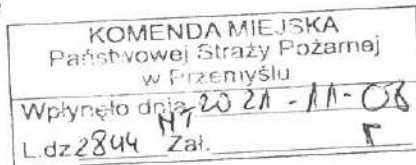 KOMENDA MIEJSKA
Państwowej Straży Pożarnej
w Przemyślu
Wpłynęło dnia 2021-11-08
L.dz 2844 Zał.